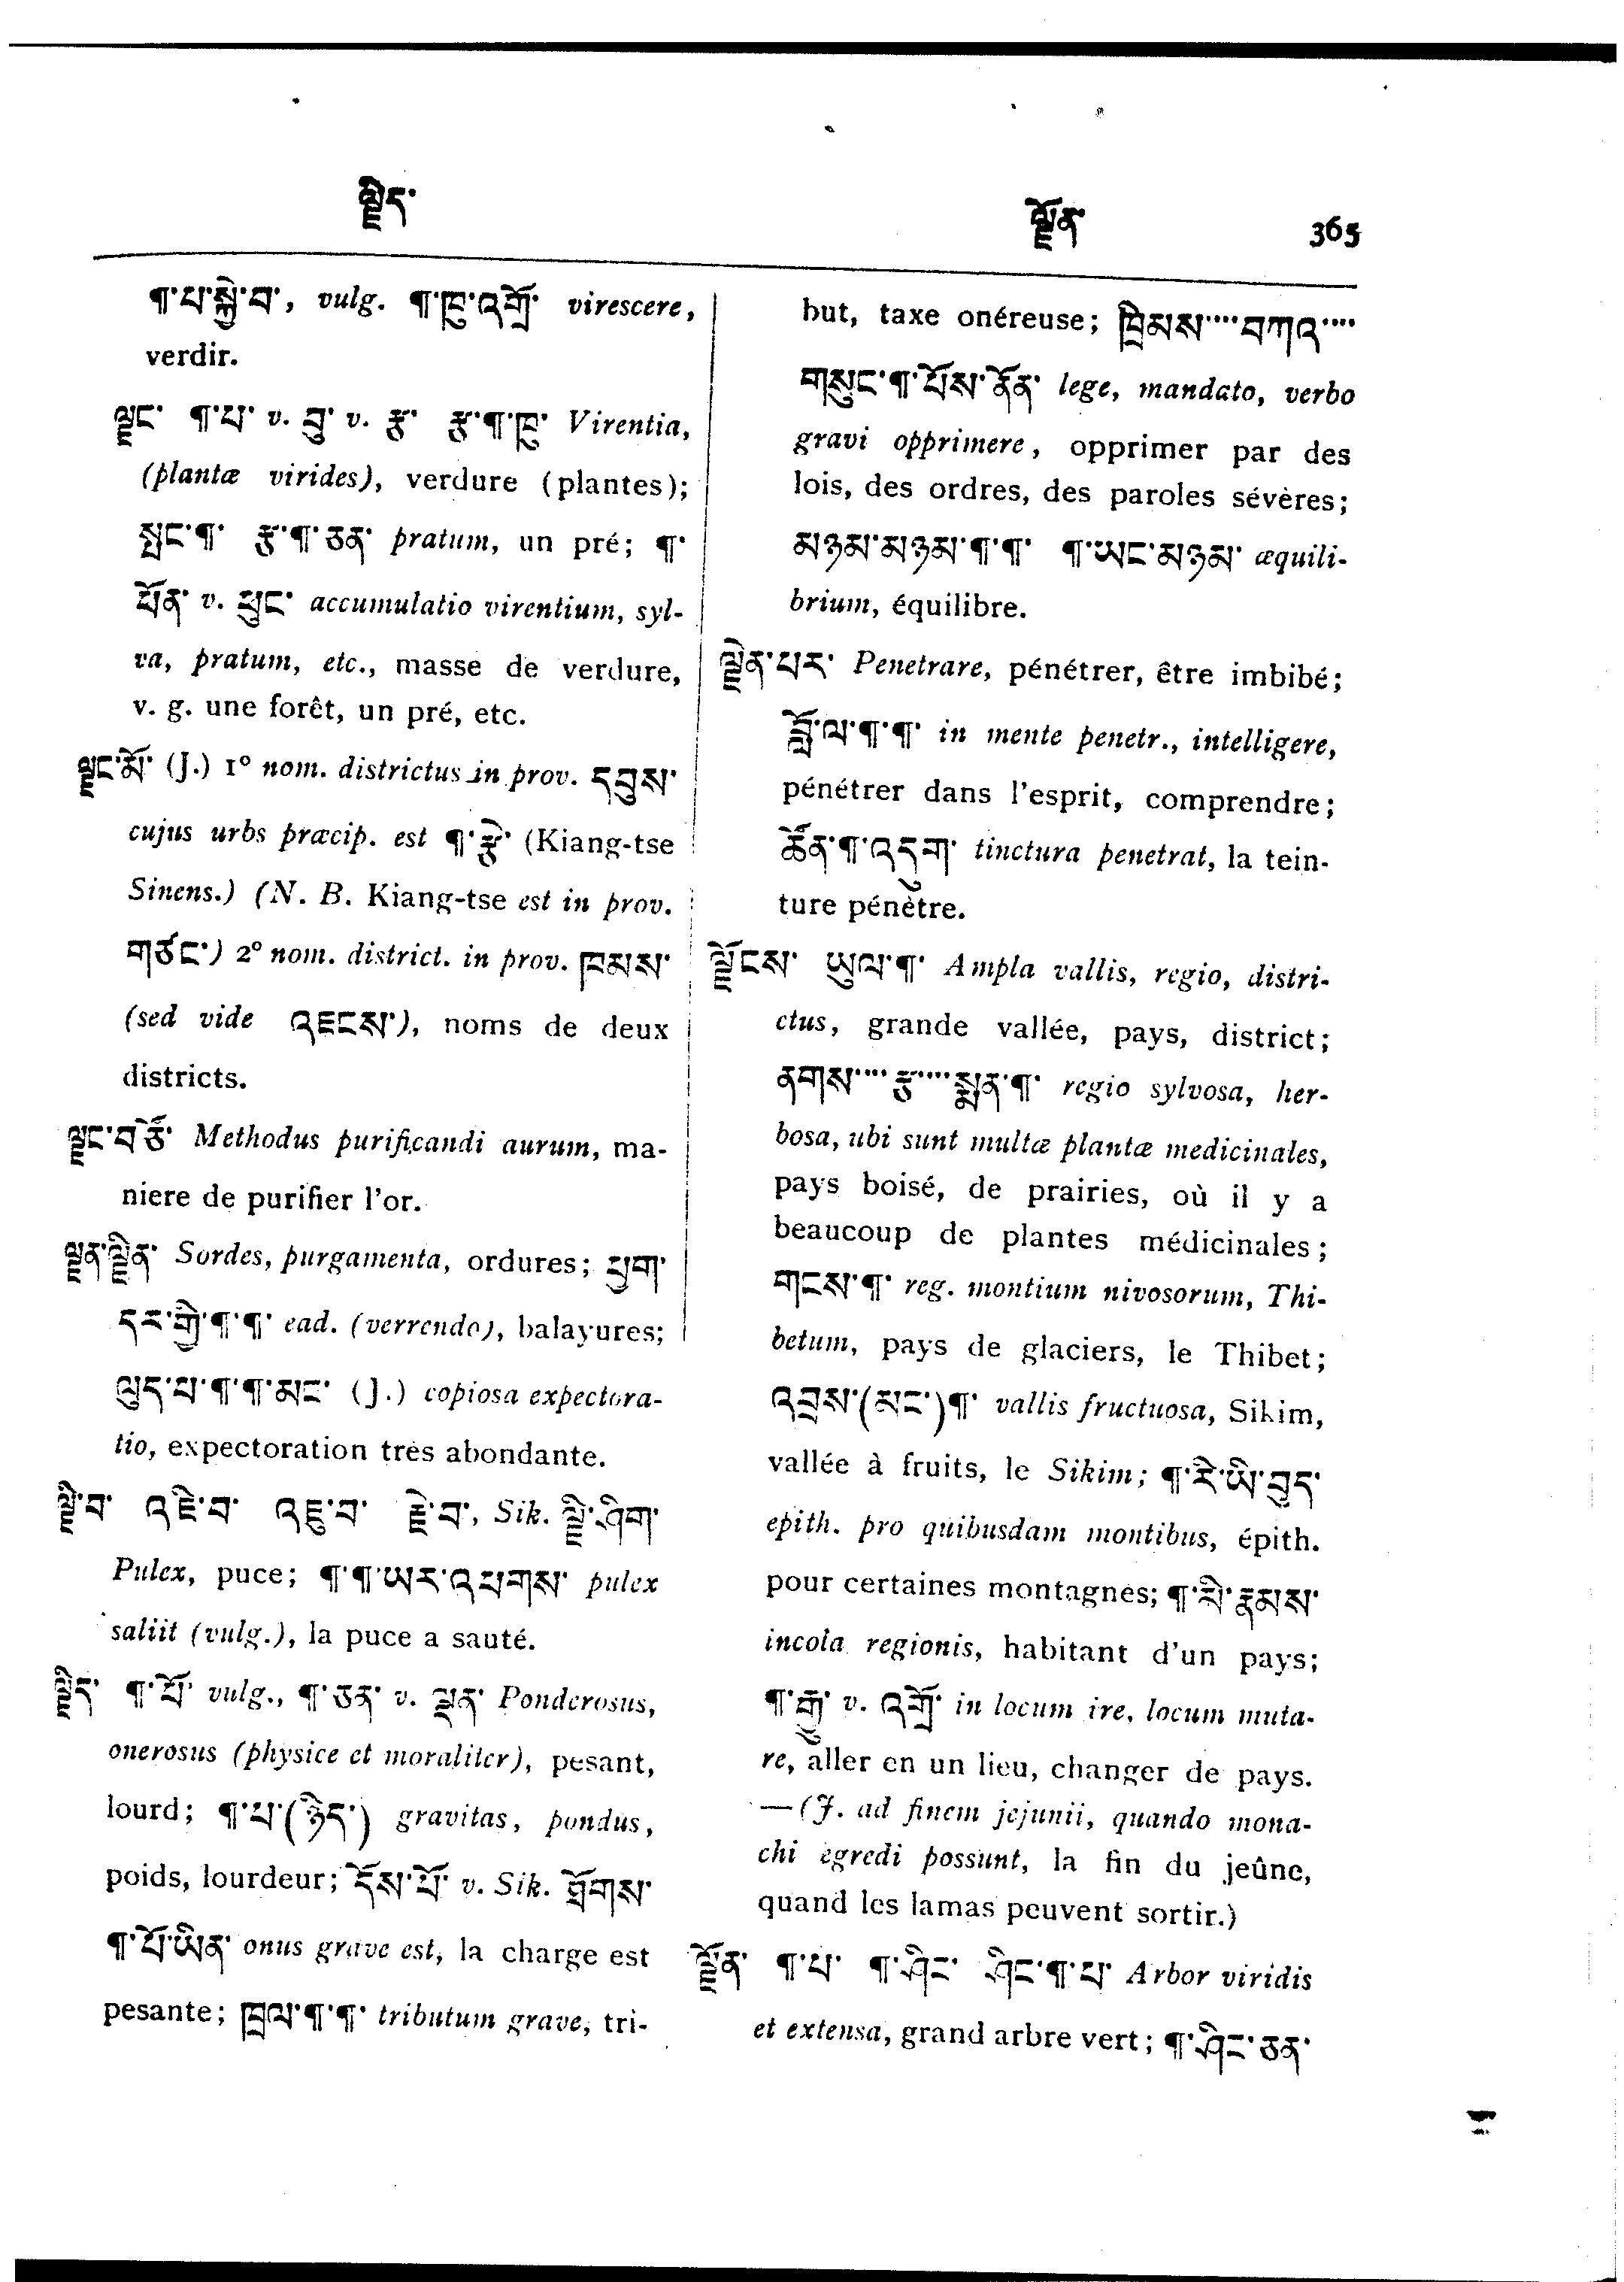 ལྗིད་
ལྗོན་ 365
¶་པ་སྐྱེ་བ་, vulg. ¶་ཁུ་འགྲོ་ virescere,
verdir.
ལྗང་ ¶་པ་ v. བུ་ v. རྩྭ་ རྩྭ་¶་ཁུ་ Virentia,
(plantæ virides), verdure (plantes);
སྤང་¶་ རྩྭ་¶་ཅན་ pratum, un pré; ¶་
པོན་ v. ཕུང་ accumulatio virentium, syl-
va, pratum, etc., masse de verdure,
v. g. une forêt, un pré, etc.
ལྗང་མོ་ (J.) 1° nom. districtus in prov. དབུས་
cujus urbs præcip. est ¶་རྩེ་ (Kiang-tse
Sinens.) (N. B. Kiang-tse est in prov.
གཙང་) 2° nom. district. in prov. ཁམས་
(sed vide འཇངས་), noms de deux
districts.
ལྗང་བཙོ་ Methodus purificandi aurum, ma-
niere de purifier l'or.
ལྗན་ལྗིན་ Sordes, purgamenta, ordures; ཕྱག་
དར་གྱི་¶་¶་ ead. (verrendo), balayures;
ལུད་པ་¶་¶་མང་ (J.) copiosa expectora-
tio, expectoration très abondante.
ལྗི་བ་ འཇི་བ་ འཇུ་བ་ རྗེ་བ་, Sik. ལྗི་ཤིག་
Pulex, puce; ¶་¶་ཡར་འཕགས་ pulex
saliit (vulg.), la puce a sauté.
ལྗིད་ ¶་པོ་ vulg., ¶་ཅན་ v. ལྡན་ Ponderosus,
onerosus (physice et moraliter), pesant,
lourd; ¶་པ་(ཉིད་) gravitas, pondus,
poids, lourdeur; དོས་པོ་ v. Sik. ཐོགས་
¶་པོ་ཡིན་ onus grave est, la charge est
pesante; ཁྲལ་¶་¶་ tributum grave, tri-
but, taxe onéreuse; ཁྲིམས་‥‥བཀའ་‥‥
གསུང་¶་པོས་ནོན་ lege, mandato, verbo
gravi opprimere, opprimer par des
lois, des ordres, des paroles sévères;
མཉམ་མཉམ་¶་¶་ ¶་ཡང་མཉམ་ æquili-
brium, équilibre.
ལྗེན་པར་ Penetrare, pénétrer, être imbibé;
བློ་ལ་¶་¶་ in mente penetr., intelligere,
pénétrer dans l'esprit, comprendre;
ཚོན་¶་འདུག་ tinctura penetrat, la tein-
ture pénètre.
ལྗོངས་ ཡུལ་¶་ Ampla vallis, regio, distri-
ctus, grande vallée, pays, district;
ནགས་‥‥རྩྭ་‥‥སྨན་¶་ regio sylvosa, her-
bosa, ubi sunt multæ plantæ medicinales,
pays boisé, de prairies, où il y a
beaucoup de plantes médicinales;
གངས་¶་ reg. montium nivosorum, Thi-
betum, pays de glaciers, le Thibet;
འབྲས་(མང་)¶་ vallis fructuosa, Sikim,
vallée à fruits, le Sikim; ¶་རི་ཡི་བུད་
epith. pro quibusdam montibus, épith.
pour certaines montagnes; ¶་པི་རྣམས་
incola regionis, habitant d'un pays;
¶་རྒྱུ་ v. འགྲོ་ in locum ire, locum muta-
re, aller en un lieu, changer de pays.
—(J. ad finem jejunii, quando mona-
chi egredi possunt, la fin du jeûne,
quand les lamas peuvent sortir.)
ལྗོན་ ¶་པ་ ¶་ཤིང་ ཤིང་¶་པ་ Arbor viridis
et extensa, grand arbre vert; ¶་ཤིང་ཅན་